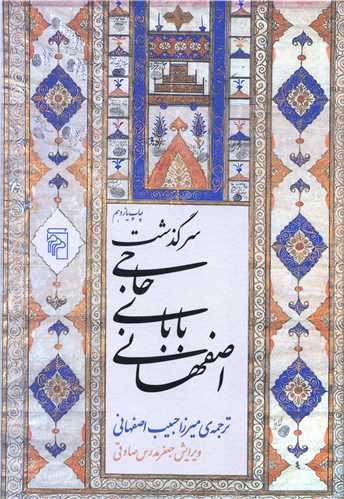 چاپ یازدهم
سرگذشت
حاجی
بابای
اصفهانی
ترجمه‌ی میرزا حبیب اصفهانی
ویرایش جعفر مدرس صادقی